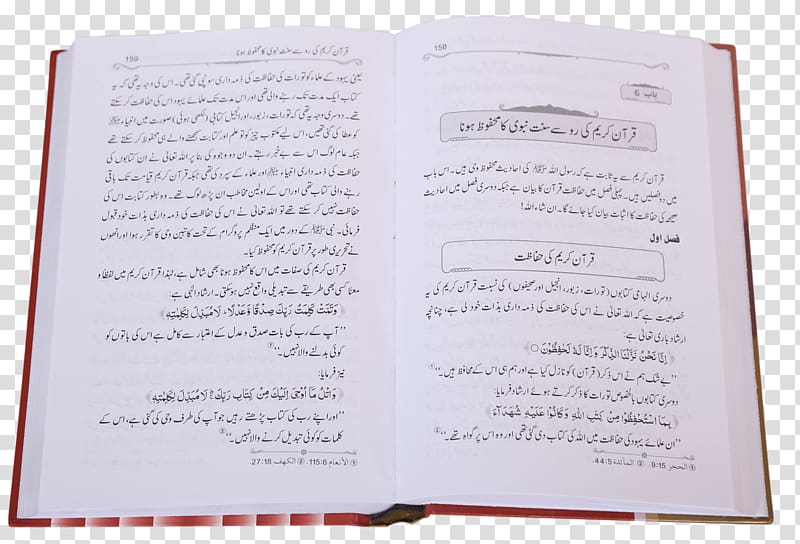 158
باب 6
قرآن کریم کی رو سے سنت نبوی کا محفوظ ہونا
قرآن کریم سے یہ ثابت ہے کہ رسول اللہ ﷺ کی احادیث محفوظ وحی ہیں۔ اس باب
میں دو فصلیں ہیں۔ پہلی فصل میں حفاظت قرآن کا بیان ہے جبکہ دوسری فصل میں احادیث
صحیحہ کی حفاظت کا اثبات بیان کیا جائے گا۔ ان شاء اللہ!
فصل اول
قرآن کریم کی حفاظت
دوسری الہامی کتابوں (تورات، زبور، انجیل اور صحیفوں) کی نسبت قرآن کریم کی یہ
خصوصیت ہے کہ اللہ تعالیٰ نے اس کی حفاظت کی ذمہ داری بذات خود لی ہے، چنانچہ
ارشاد باری تعالیٰ ہے:
﴿اِنَّا نَحْنُ نَزَّلْنَا الذِّكْرَ وَ اِنَّا لَهٗ لَحٰفِظُوْنَ ○﴾
’’بے شک ہم نے اس ذکر (قرآن) کو نازل کیا ہے اور ہم ہی اس کے محافظ ہیں۔‘‘①
دوسری کتابوں بالخصوص تورات کا ذکر کرتے ہوئے ارشاد فرمایا:
﴿بِمَا اسْتُحْفِظُوْا مِنْ كِتٰبِ اللّٰهِ وَ كَانُوْا عَلَيْهِ شُهَدَآءَ﴾
’’ان علمائے یہود کی حفاظت میں اللہ کی کتاب دی گئی تھی اور وہ اس پر گواہ تھے۔‘‘②
① الحجر 9:15. ② المائدة 44:5.
159
قرآن کریم کی رو سے سنت نبوی کا محفوظ ہونا
یعنی یہود کے علماء کو تورات کی حفاظت کی ذمہ داری سونپی گئی تھی۔ اس کی وجہ یہ تھی کہ یہ
کتاب ایک مدت تک رہنے والی تھی اور اس مدت تک علمائے یہود اس کی حفاظت کر سکتے
تھے۔ دوسری وجہ یہ تھی کہ تورات، زبور، اور انجیل کتابی (لکھی ہوئی) صورت میں انبیاء
کو عطا کی گئی تھیں، اس لیے مکتوب چیز کو تو اہل علم اور کتابت سمجھنے والے ہی محفوظ کر سکتے تھے
جبکہ عام لوگ اس سے بے خبر رہتے۔ ان دو وجوہ کی بنا پر اللہ تعالیٰ نے ان کتابوں کی
حفاظت کی ذمہ داری انبیاء اور علماء کے سپرد کی تھی جبکہ قرآن کریم قیامت تک باقی
رہنے والی کتاب تھی اور اس کے اولین مخاطب ان پڑھ لوگ تھے۔ وہ بطور کتابت اس کی
حفاظت نہیں کر سکتے تھے تو اللہ تعالیٰ نے اس کی حفاظت کی ذمہ داری بذات خود قبول
فرمائی۔ نبی ﷺ کے دور میں ایک منظم پروگرام کے تحت کاتبین وحی کا تقرر ہوا اور انھوں
نے تحریری طور پر قرآن کریم کو محفوظ کیا۔
قرآن کریم کی صفات میں اس کا محفوظ ہونا بھی شامل ہے، لہٰذا قرآن کریم میں لفظاً و
معناً کسی بھی طریقے سے تبدیلی واقع نہیں ہو سکتی۔ ارشاد الٰہی ہے:
﴿وَ تَمَّتْ كَلِمَتُ رَبِّكَ صِدْقًا وَّ عَدْلًا، لَا مُبَدِّلَ لِكَلِمٰتِهٖ﴾
’’آپ کے رب کی بات صدق و عدل کے اعتبار سے کامل ہے اس کی باتوں کو
کوئی بدلنے والا نہیں۔‘‘①
نیز فرمایا:
﴿وَ اتْلُ مَاۤ اُوْحِيَ اِلَيْكَ مِنْ كِتَابِ رَبِّكَ لَا مُبَدِّلَ لِكَلِمٰتِهٖ﴾
’’اور اپنے رب کی کتاب پڑھتے رہیں جو آپ کی طرف وحی کی گئی ہے، اس کے
کلمات کو کوئی تبدیل کرنے والا نہیں۔‘‘②
① الأنعام 115:6. ② الكهف 27:18.